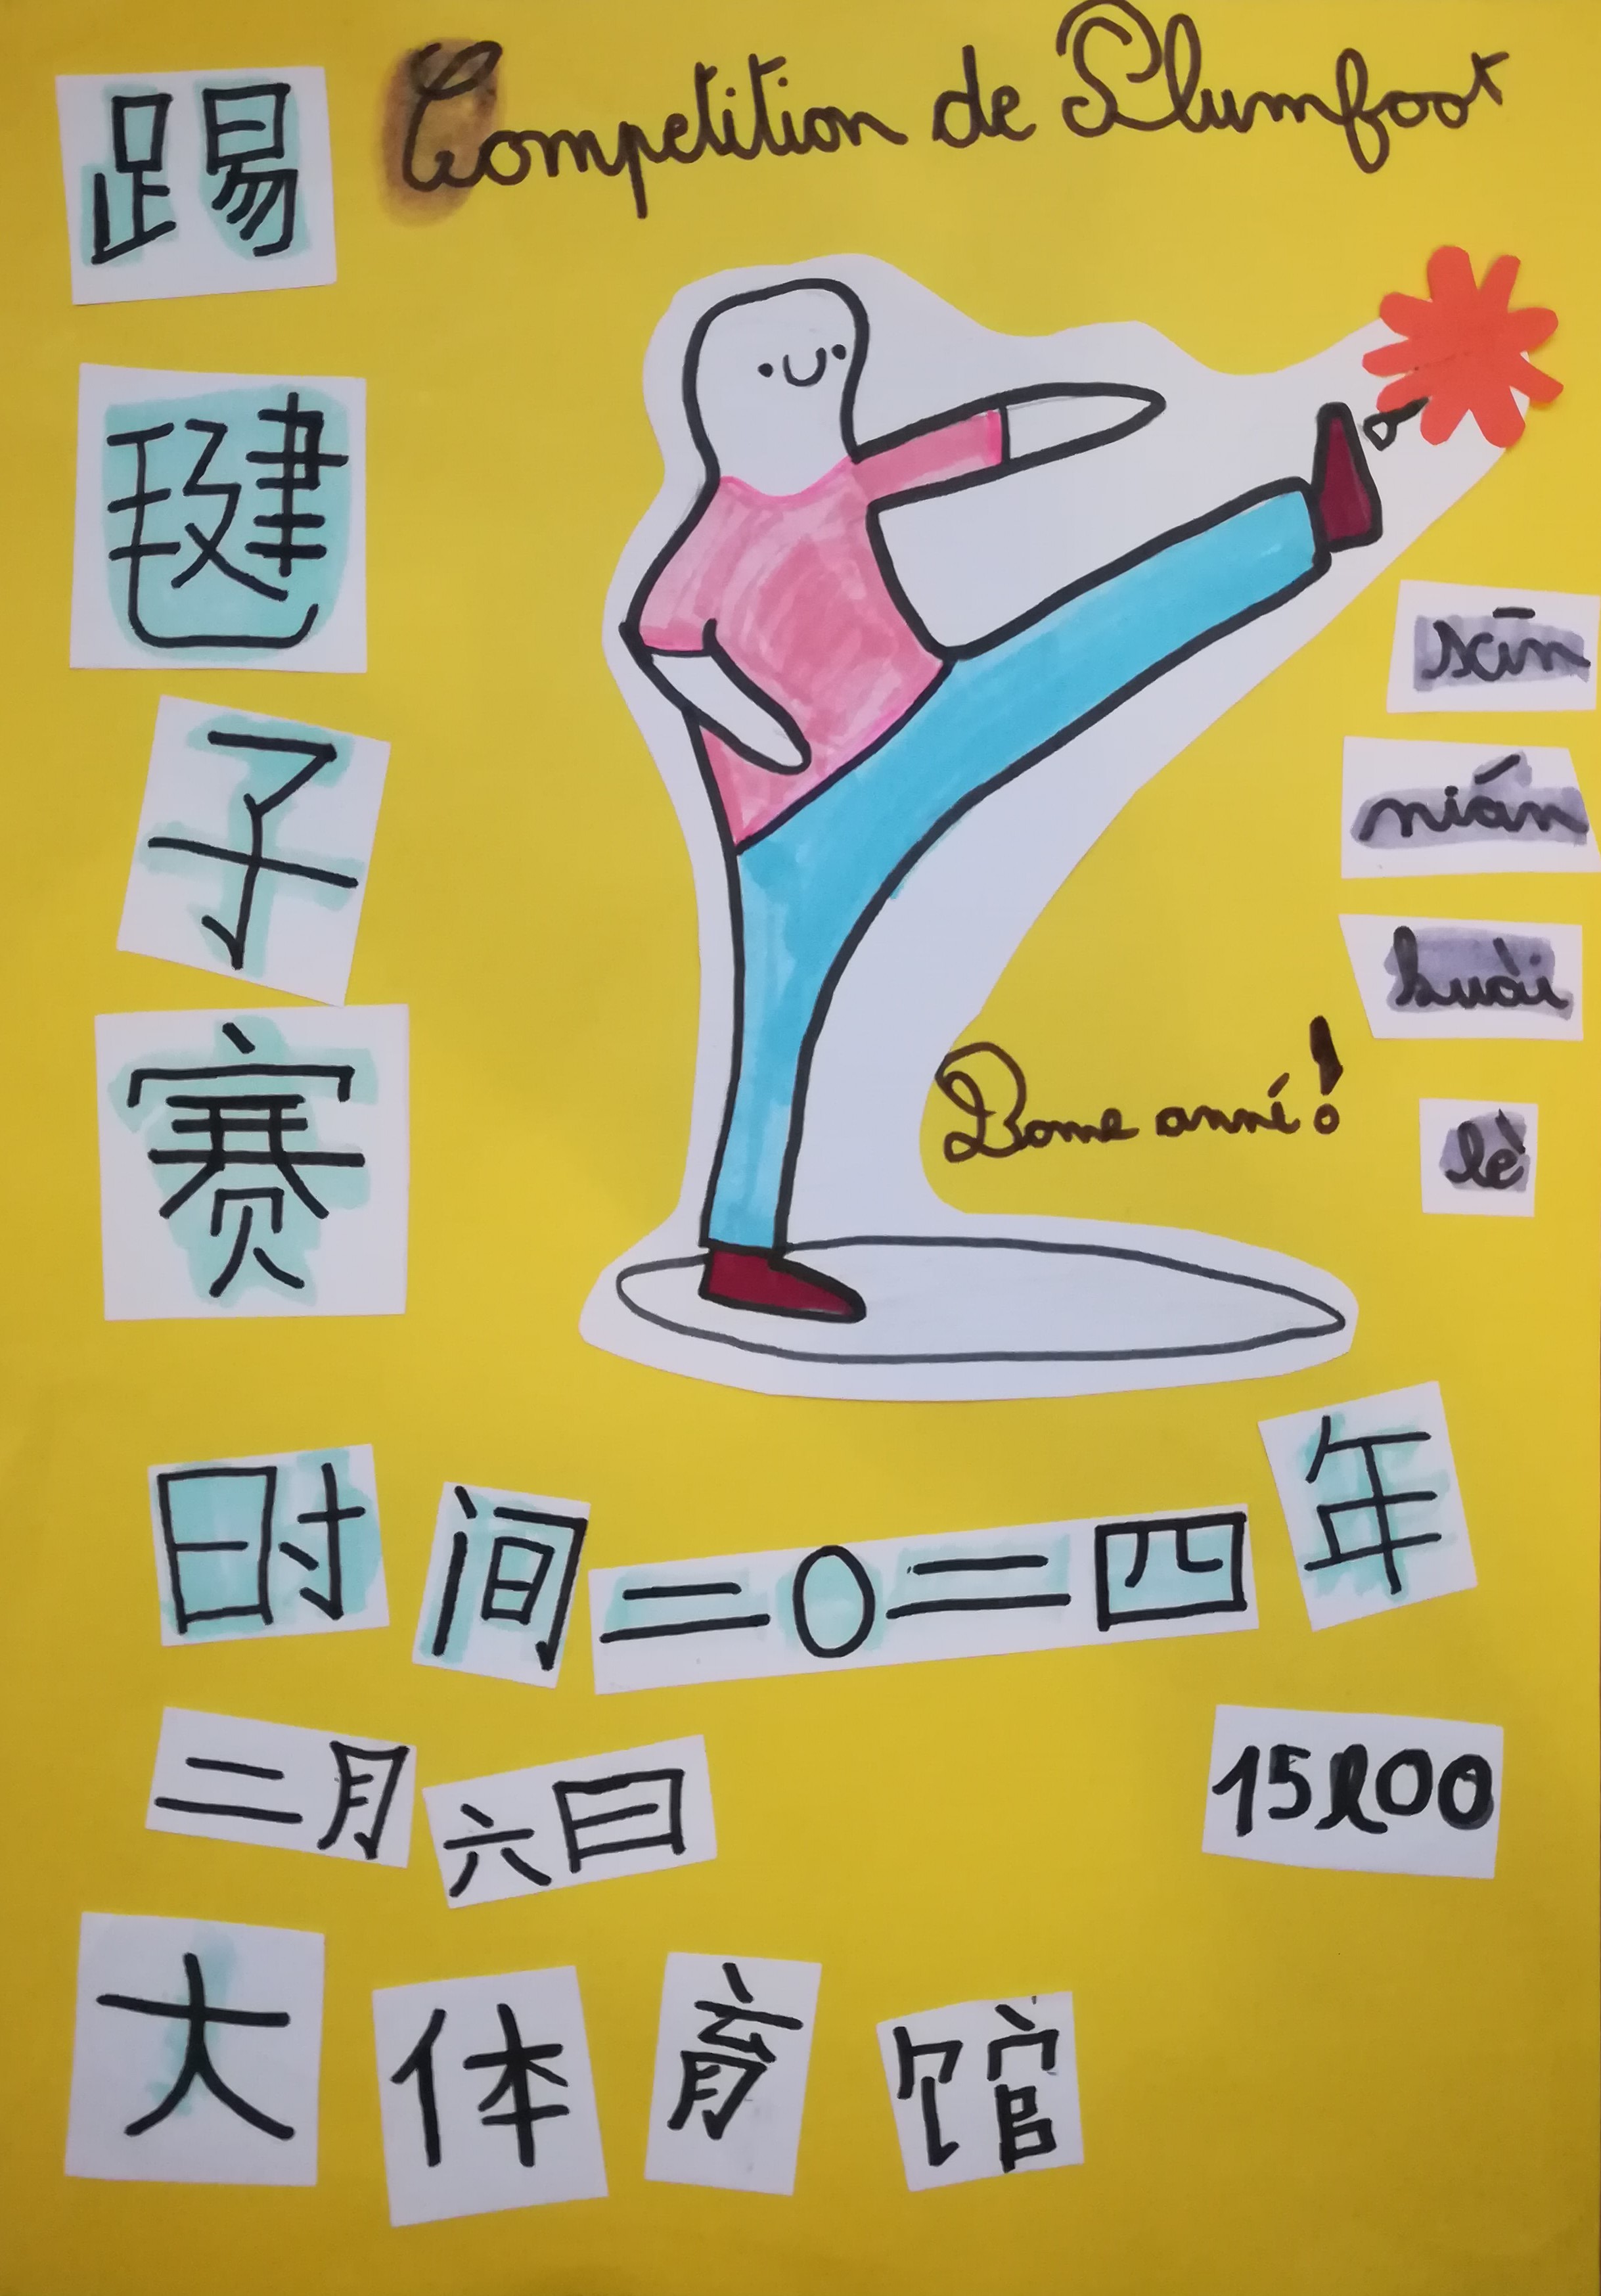 Competition de Plumfoot
踢
毽
子
赛
xīn
nián
kuài
lè
Bonne anné!
时间二0二四年
二月六日
15h00
大体育馆